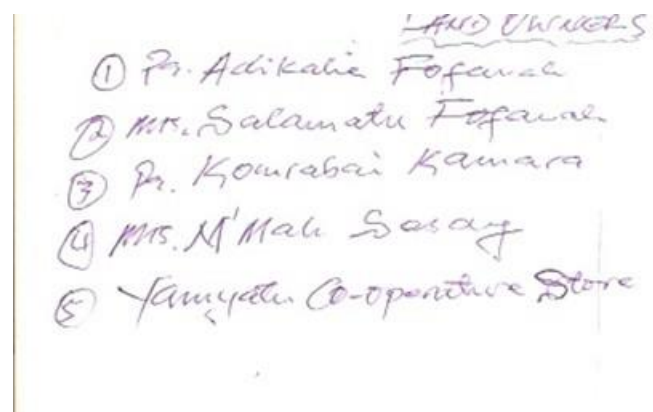 LAND OWNERS
① Pa. Adikalie Fofanah
② Mrs. Salamatu Fofanah
③ Pa. Komrabai Kamara
④ Mrs. M'Mah Sesay
⑤ Co-operative Store